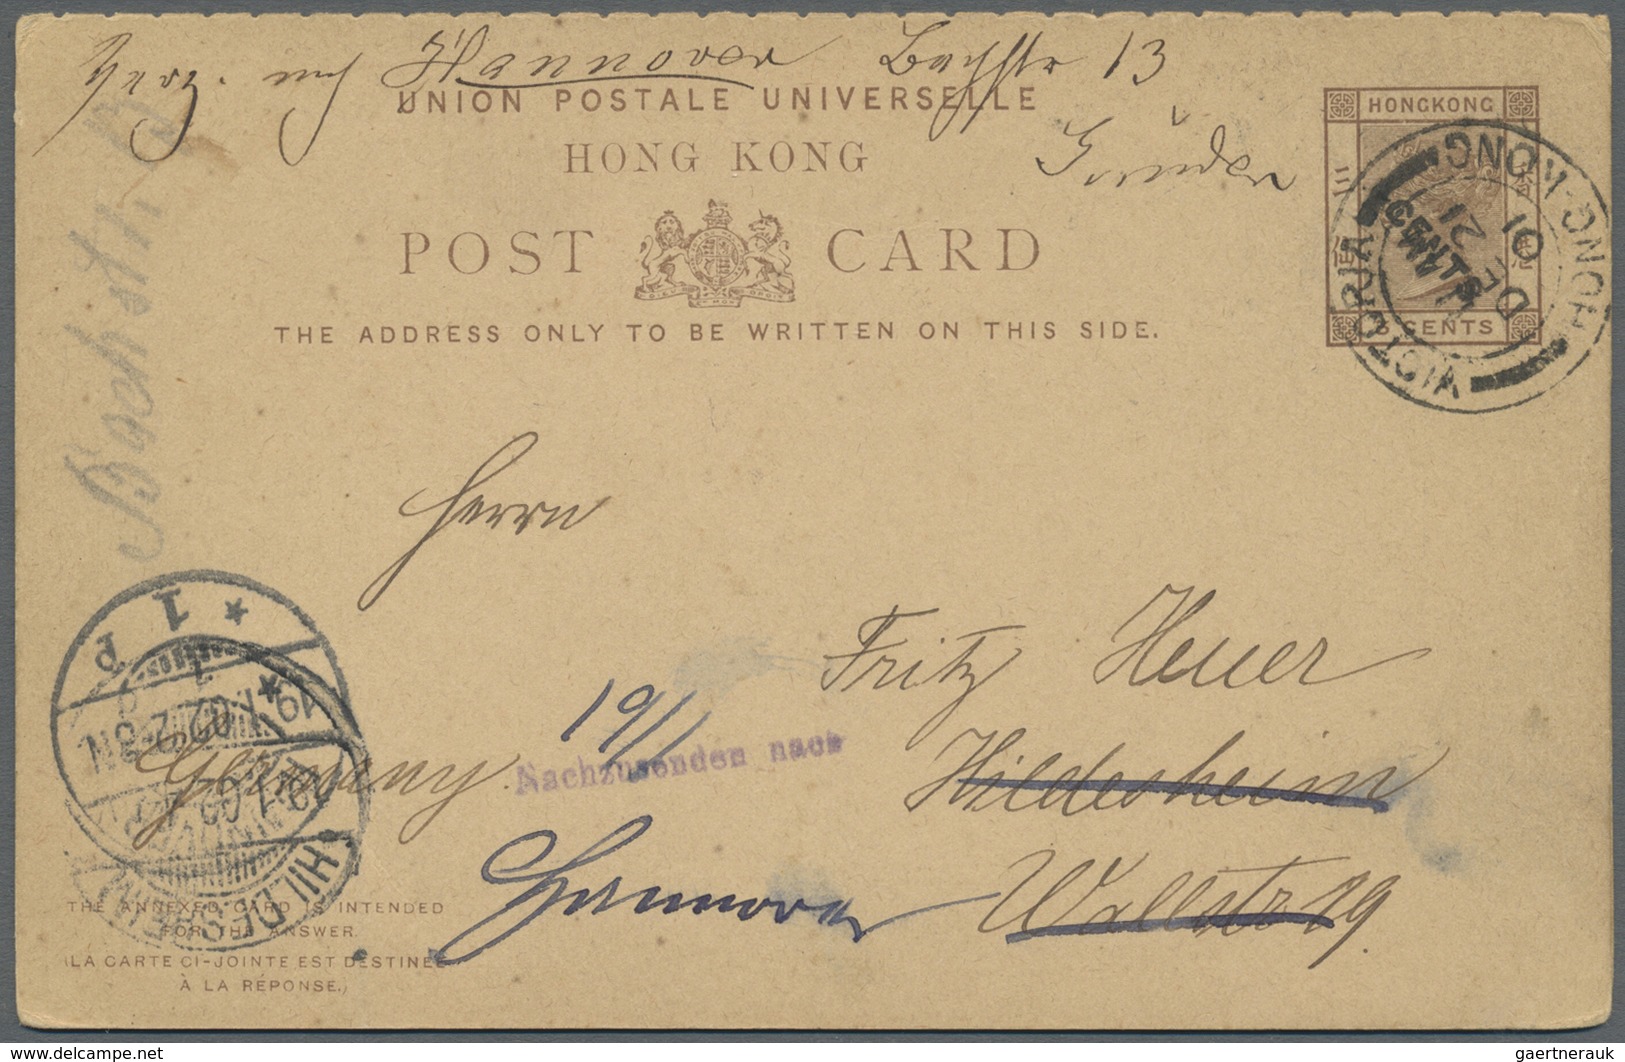 Hannover Bachstr 13
UNION POSTALE UNIVERSELLE
HONG KONG
POST CARD
THE ADDRESS ONLY TO BE WRITTEN ON THIS SIDE.
HONGKONG
3 CENTS
HONG-KONG
VICTORIA
DE 21
01
3 CENTS
Bachstr. 13
Herrn
Fritz Heuer
19/1
Nachzusenden nach
Hildesheim
Germany.
Hannover
Wallstr 19.
* 1 P
HANNOVER
HILDESHEIM
THE ANNEXED CARD IS INTENDED
FOR THE ANSWER.
(LA CARTE CI-JOINTE EST DESTINÉE
À LA RÉPONSE.)
https://www.delcampe.net
gaertnerauk